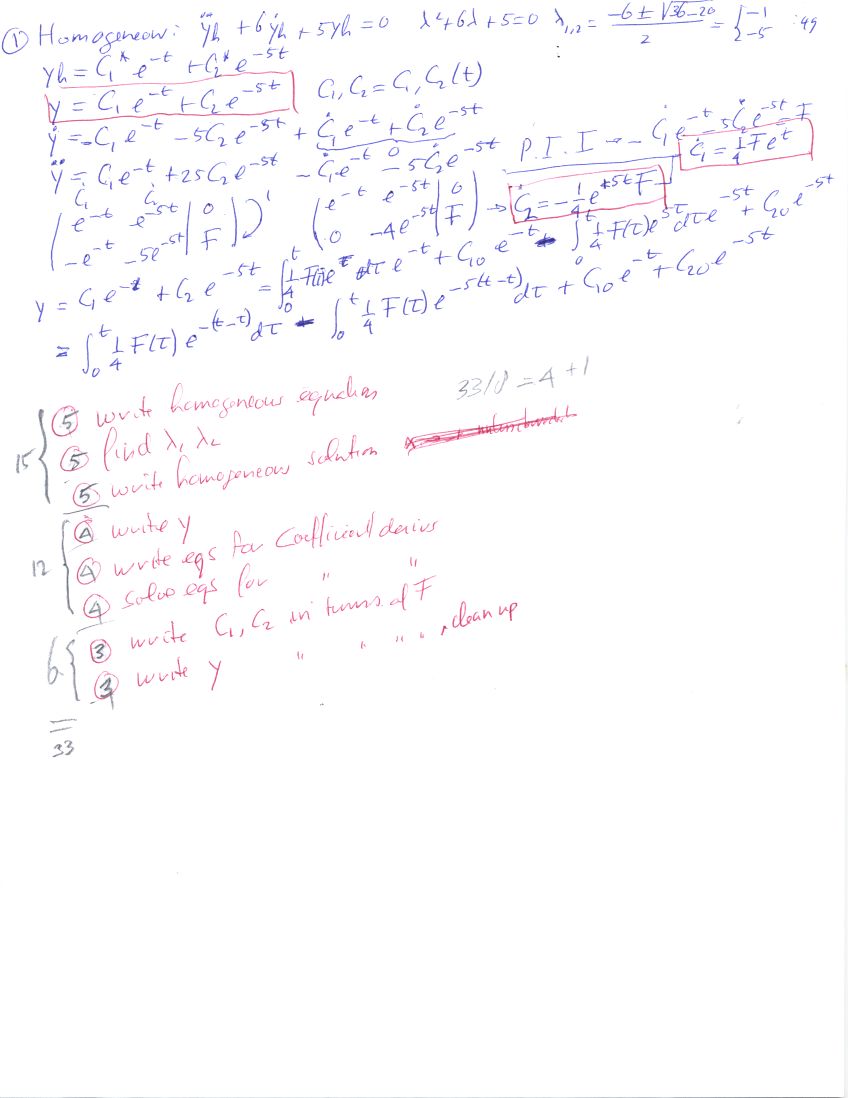 ① Homogeneous: ÿh + 6ẏh + 5yh = 0   λ²+6λ+5=0   λ1,2 = (-6 ± √36-20)/2 = { -1 -5   :49
yh = C1* e^-t + C2* e^-5t
y = C1 e^-t + C2 e^-5t   C1, C2 = C1, C2(t)
ẏ = -C1 e^-t - 5C2 e^-5t + Ċ1 e^-t + Ċ2 e^-5t
0
P.I.I → - Ċ1 e^-t - 5Ċ2 e^-5t = F
ÿ = C1 e^-t + 25C2 e^-5t - Ċ1 e^-t - 5Ċ2 e^-5t
Ċ1 = 1/4 F e^t
Ċ1   Ċ2
( e^-t   e^-5t | 0 )   ( e^-t   e^-5t | 0 )
( -e^-t   -5e^-5t | F )   ( 0   -4e^-5t | F ) → Ċ2 = -1/4 e^+5t F
y = C1 e^-t + C2 e^-5t = ∫0^t 1/4 F(τ) e^τ dτ e^-t + C10 e^-t - ∫0^t 1/4 F(τ) e^5τ dτ e^-5t + C20 e^-5t
= ∫0^t 1/4 F(τ) e^-(t-τ) dτ - ∫0^t 1/4 F(τ) e^-5(t-τ) dτ + C10 e^-t + C20 e^-5t
33/8 = 4 + 1
15 { ⑤ write homogeneous equation
⑤ find λ1 λ2
⑤ write homogeneous solution
12 { ④ write y
④ write eqs for Coefficient derivs
④ solve eqs for " "
6 { ③ write C1, C2 in terms of F
③ write y " " " " , clean up
33